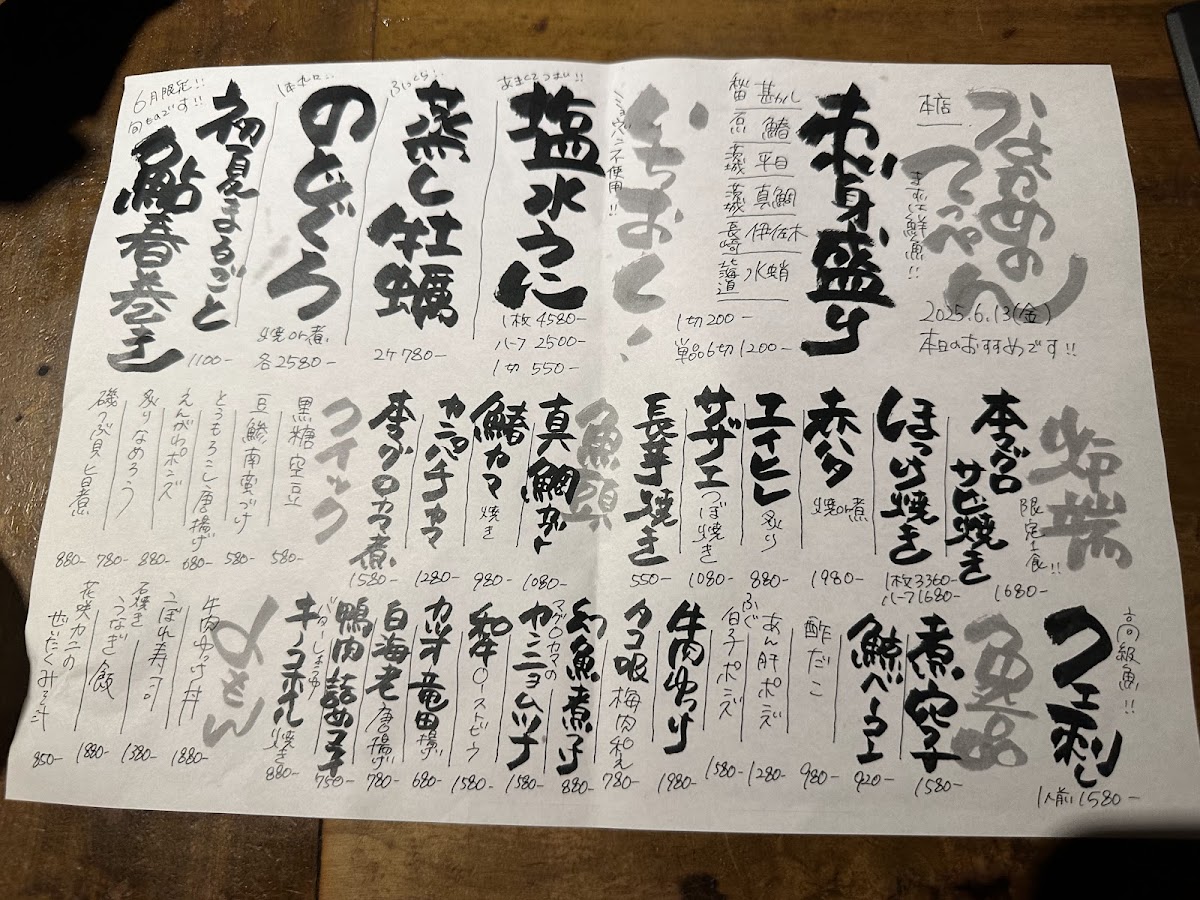 本店
つばめの
てっぺん
まずは鮮魚!!
2025.6.13(金)
本日のおすすめです!!
刺身盛り
甚カレ
鰆
茨城 平目
茨城 真鯛
長崎 伊佐木
北海道 水蛸
1切200-
単品6切1200-
いちおし!
ミョウバン不使用!!
あまくてつぶい!!
塩水うに
1枚4580-
ハーフ2500-
1切550-
ふっくら!!
蒸し牡蠣
2ケ780-
のどぐろ
焼or煮
各2580-
6月限定!!
旬もの2です!!
初夏まるごと
鮎春巻き
1100-
炉端
本マグロ
サビ焼き
限定食!!
1680-
ほっけ焼き
1枚3360-
ハーフ1680-
赤ハタ
焼or煮
1980-
エイヒレ
炙り
880-
サザエ
つぼ焼き
1080-
長芋焼き
550-
魚頭
真鯛カブト
1080-
鰆カマ
焼き
980-
カンパチカマ
1280-
本マグロカマ煮
1580-
クイック
黒糖空豆
580-
豆鯵南蛮づけ
580-
とうもろこし唐揚げ
680-
えんがわポンズ
880-
炙りなめろう
780-
磯つぶ貝旨煮
880-
高級魚!!
クエ刺し
1人前1580-
逸品
煮穴子
1580-
鯨ベーコン
920-
酢だこ
980-
あん肝ポンズ
1280-
ふぐ
白子ポンズ
1580-
牛肉ゆっけ
1980-
タコ吸
梅肉和え
780-
幻魚煮こ
880-
マグロカマの
カニョムツナ
1580-
和牛ローストビーフ
1580-
カツオ竜田揚げ
680-
白海老
唐揚げ
780-
鴨肉詰め
750-
バターしょうゆ
キーコホルモン
焼き
880-
〆もん
牛肉ゆっけ丼
1880-
こぼれ寿司
1380-
石焼き
うなぎ飯
1880-
花咲カニの
ぜいたくみそ汁
850-